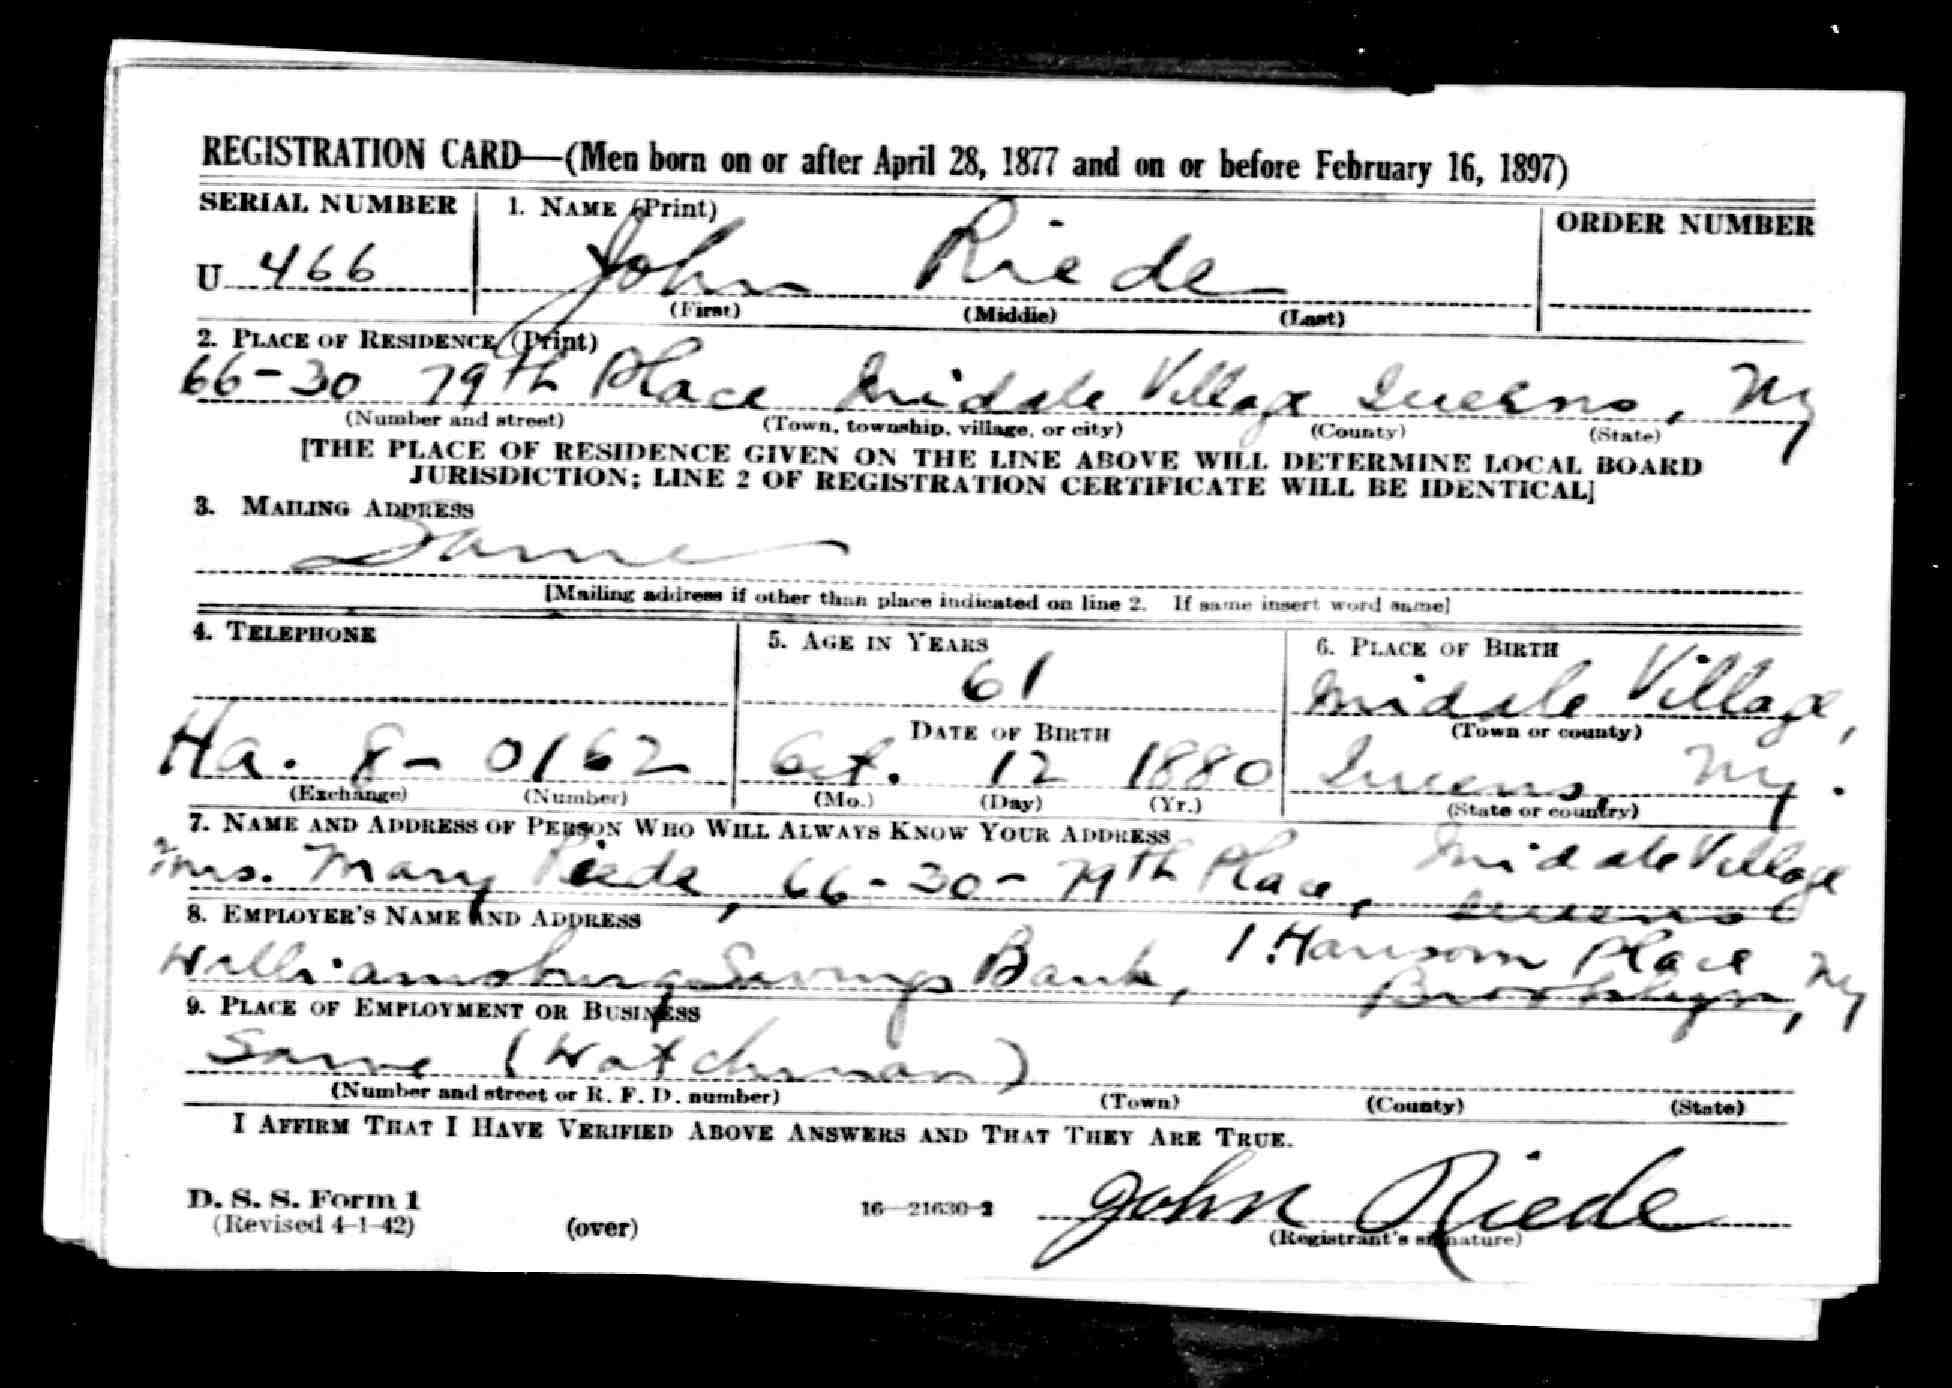 REGISTRATION CARD—(Men born on or after April 28, 1877 and on or before February 16, 1897)
SERIAL NUMBER 1. NAME (Print) ORDER NUMBER
U 466 John Riede
(First) (Middle) (Last)
2. PLACE OF RESIDENCE (Print)
66-30 79th Place Middle Village Queens, Ny
(Number and street) (Town, township, village, or city) (County) (State)
[THE PLACE OF RESIDENCE GIVEN ON THE LINE ABOVE WILL DETERMINE LOCAL BOARD
JURISDICTION; LINE 2 OF REGISTRATION CERTIFICATE WILL BE IDENTICAL]
3. MAILING ADDRESS
Same
[Mailing address if other than place indicated on line 2. If same insert word same]
4. TELEPHONE 5. AGE IN YEARS 6. PLACE OF BIRTH
61 Middle Village,
DATE OF BIRTH (Town or county)
Ha. 8- 0162 Oct. 12 1880 Queens, Ny.
(Exchange) (Number) (Mo.) (Day) (Yr.) (State or country)
7. NAME AND ADDRESS OF PERSON WHO WILL ALWAYS KNOW YOUR ADDRESS
Mrs. Mary Riede, 66-30-79th Place, Middle Village
Queens
8. EMPLOYER'S NAME AND ADDRESS
Williamsburg Savings Bank, 1. Hansom Place
Brooklyn, Ny
9. PLACE OF EMPLOYMENT OR BUSINESS
Same (Watchman)
(Number and street or R. F. D. number) (Town) (County) (State)
I AFFIRM THAT I HAVE VERIFIED ABOVE ANSWERS AND THAT THEY ARE TRUE.
D. S. S. Form 1
(Revised 4-1-42) (over) 16—21630-2 John Riede
(Registrant's signature)